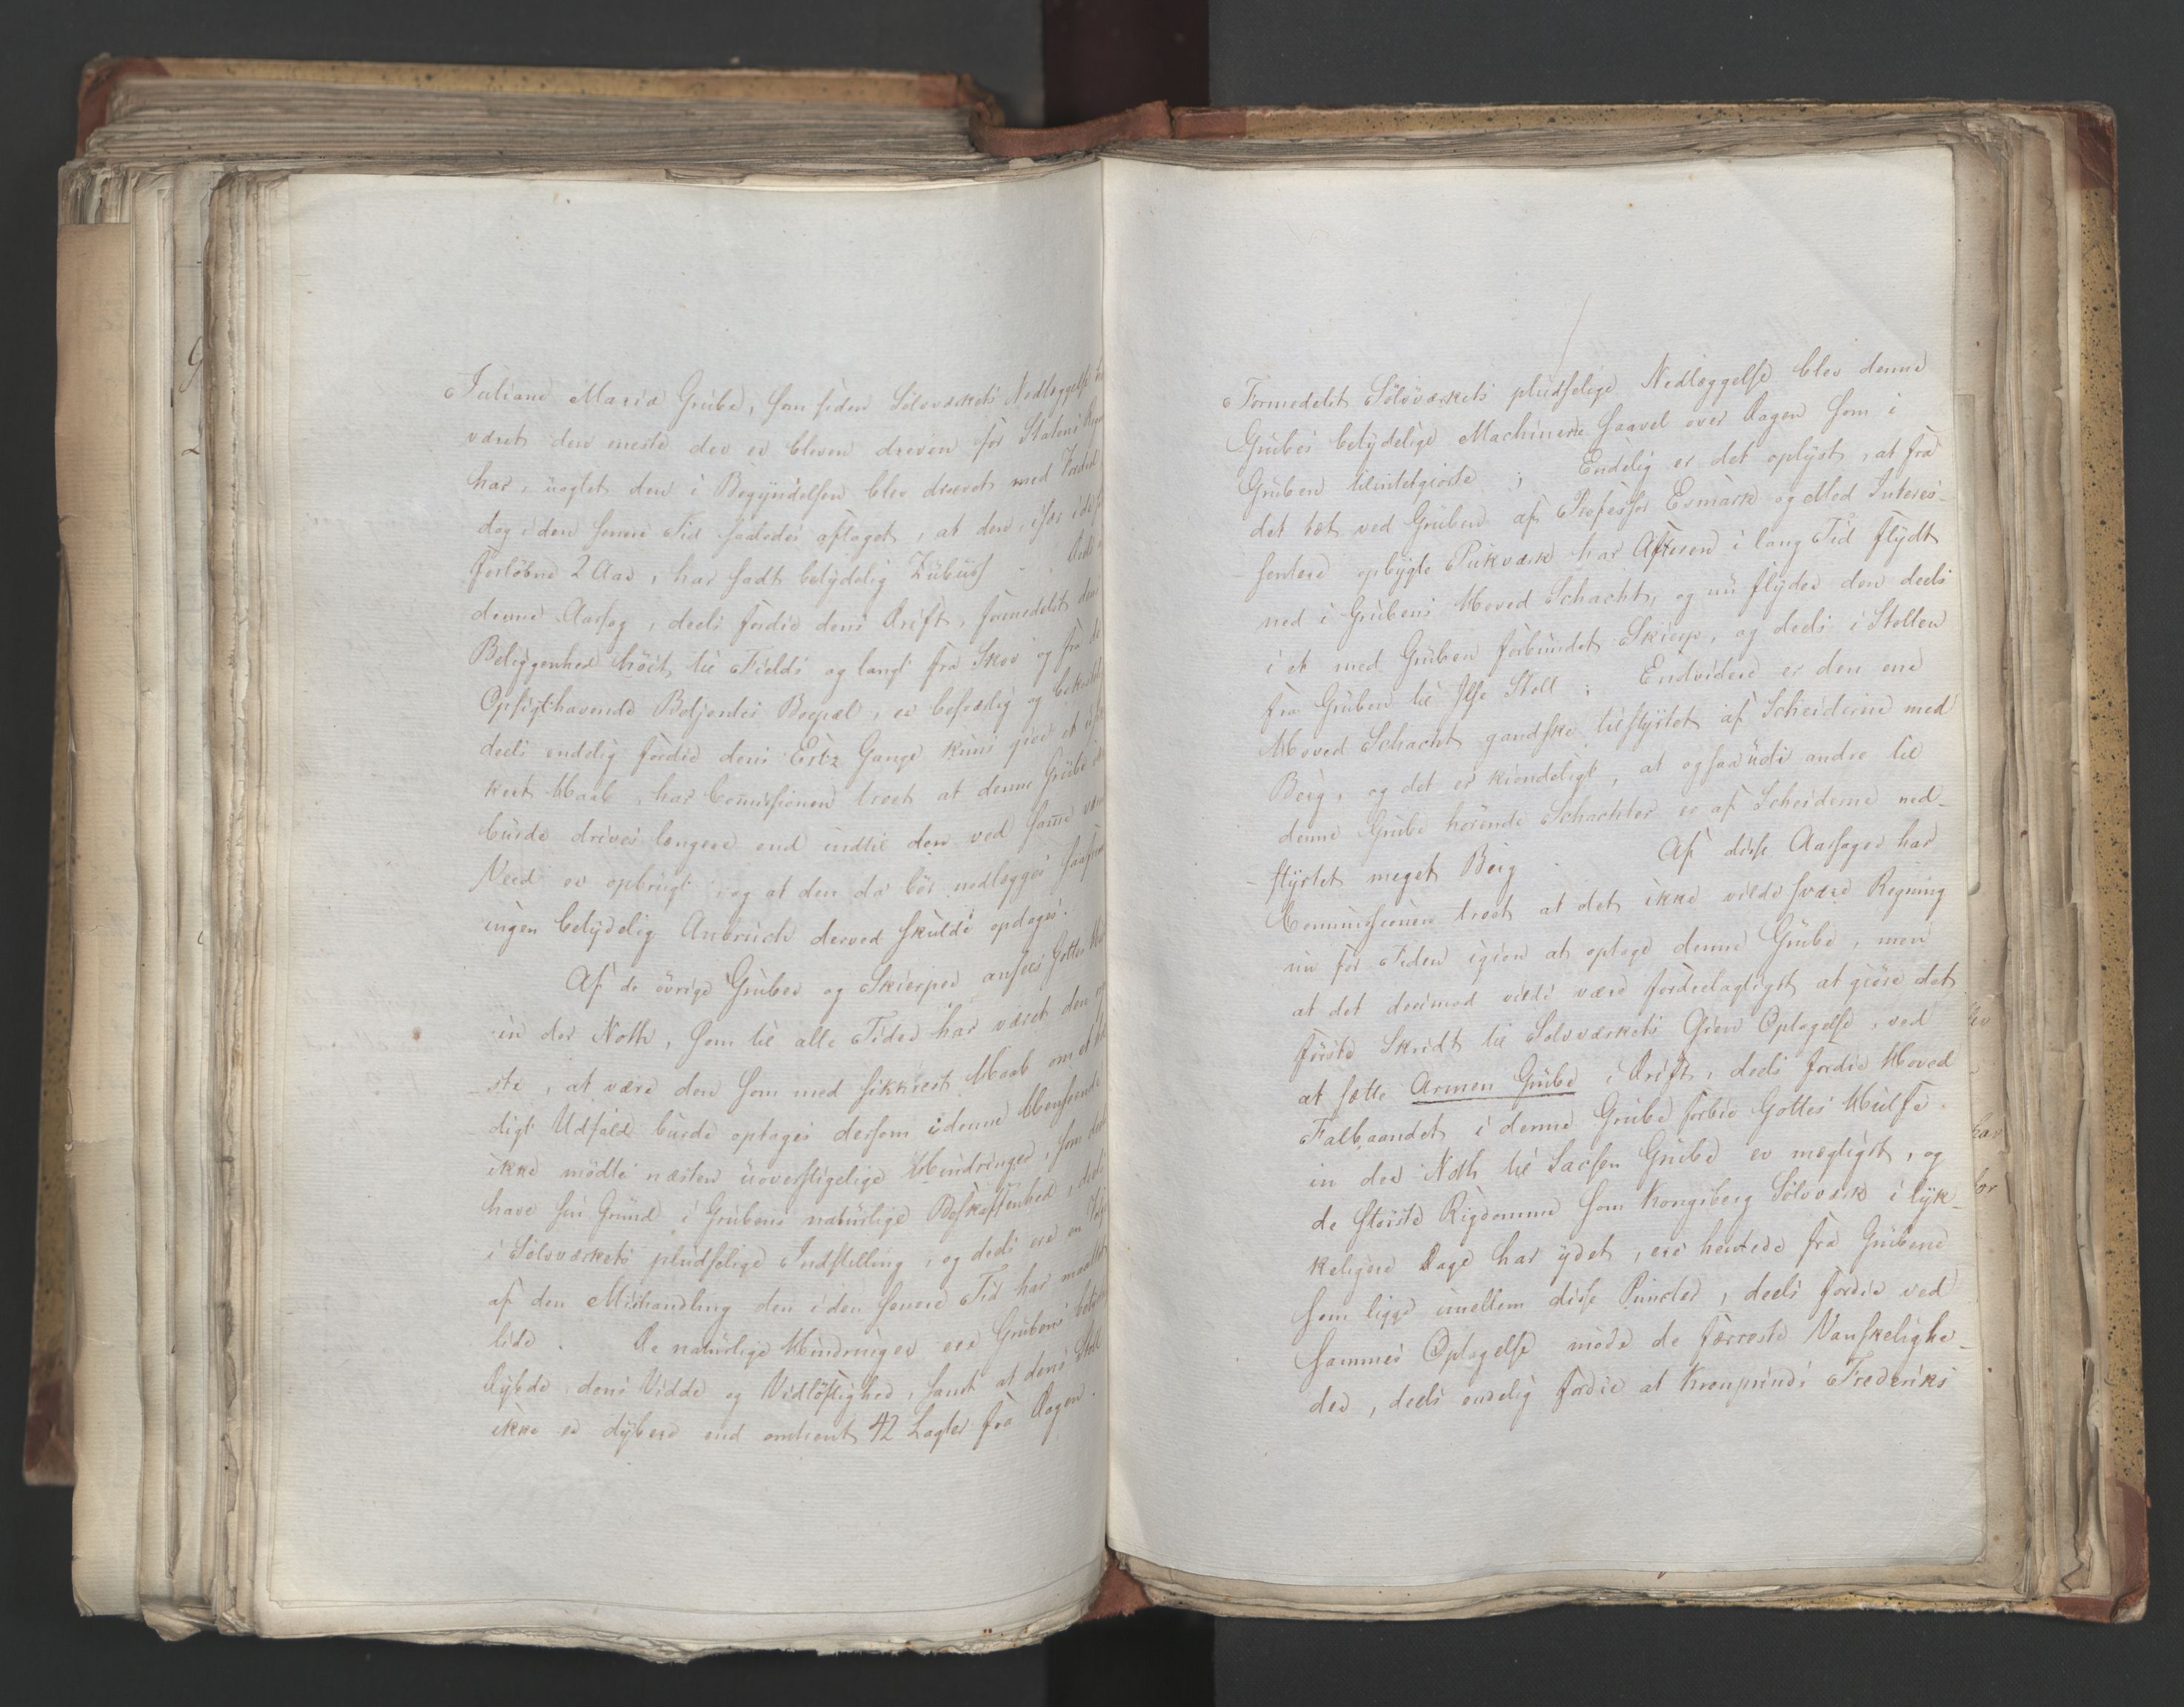 Juliane Maria Grube, som siden Sölvværkets Nedlæggelse
været den eneste der er bleven dreven for Statens
har, uagtet den i Begyndelsen blev drevet med Fordeel
dog i den senere Tid saaledes aftaget, at den, især i de
forløbne 2 Aar, har havt betydelig Zubuss. Af
denne Aarsag, deels fordie dens Drift, formedelst dens
Beliggenhed höit til Fields og langt fra Skov og fra de
Opsigthavende Betjentes Boepæl, er besværlig og bekostelig
deels endelig fordie dens Ertz Gange kuns give et
kert Haab, har Commissionen troet at denne Grube
burde drives længere end indtil den ved samme
Veed er opbrugt, og at den da bör nedlægges
ingen betydelig Anbruch derved skulde opdages.
Af de övrige Gruber og Skierper ansees Gottes
in der Noth, som til alle Tider har været den
ste, at være den som med sikkrest Haab om et
digt Udfald burde optages dersom i denne Henseende
ikke mödte næsten uoverstigelige Hindringer, som deels
have sin Grund i Grubens naturlige Beskaffenhed, deels
i Sölvværkets pludselige Indstilling, og deels ere en
af den Mishandling den i den senere Tid har maattet
lide. De naturlige Hindringer ere Grubens
Dybde dens Vidde og Vidlöftighed, samt at dens Stoll
ikke er dybere end omtrent 42 Lagter fra Dagen.
Formedelst Sölvværkets pludselige Nedlæggelse blev denne
Grubes betydelige Machinerie saavel over Dagen som i
Gruben tilintetgiorte; Endelig er det oplyst, at fra
det tæt ved Gruben af Professor Esmark og Med Interes-
sentere opbygte Pukværk har Afteren i lang Tid flydt
ned i Grubens Hoved Schacht, og nu flyder den deels
i et med Gruben forbundet Skierp, og deels i Stollen
fra Gruben til Ilse Stoll; Endvidere er den ene
Hoved Schacht gandske tilstyrtet af Scheiderne med
Berg, og det er kiendeligt, at ogsaa udi andre til
denne Grube hörende Schachter er af Scheiderne ned-
styrtet meget Berg. Af disse Aarsager har
Commissionen troet at det ikke vilde svare Regning
nu for Tiden igien at optage denne Grube, men
at det derimod vilde være fordeelagtigst at giöre det
förste Skridt til Sölvværkets Gien Optagelse, ved
at sætte Armen Grube i Drift, deels fordie Hoved
Falbaandet i denne Grube forbie Gottes Hülfe
in der Noth til Sachsen Grube er mægtigst, og
de störste Rigdomme som Kongsberg Sölvværk i lyk-
keligere Dage har ydet, ere hentede fra Grubene
som ligge imellem disse Puncter, deels fordie ved
sammes Optagelse möde de færreste Vanskelighe-
der, deels endelig fordie at Kronprinds Frederiks